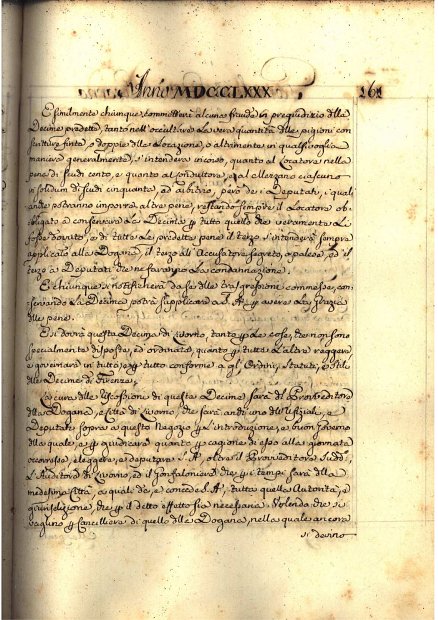 Anno MDCCLXXX 161
E similmente chiunque commetterà alcuna fraude in pregiudizio dlla
Decima predetta, tanto nell'occultare la vera quantità dlle pigioni con
scritture finte, o doppie dlle Locazioni, o altrimenti in qualsivoglia
maniera generalmente, s'intenderà incorso, quanto al Locatore nella
pena di scudi cento, e quanto al conduttore, e al
in solidum di scudi cinquanta, ad arbitrio, però de i Deputati, i quali
anche potranno imporre altre pene, restando sempre il Locatore ob-
bligato a conservare la Decima p tutto quello che veramente le
fosse dovuto, e di tutte le predette pene il terzo s'intenderà sempre
applicato alla Dogana, il terzo all'Accusatore segreto, o palese, ed il
terzo a Deputati che ne faranno la condannazione.
E chiunque si notificherà da se dlle trasgressioni commesse, con-
servando la Decima potrà supplicare a S. A. p avere la grazia
dlle pene.
E si dovrà questa Decima di Livorno, tanto p le cose, che non sono
specialmente disposte, ed ordinate, quanto p tutte l'altre reggere,
e governare in tutto, e p tutto conforme a gl'Ordini, Statuti, e Stili
dlle Decime di Firenze.
La cura dlla Riscossione di questa Decima sarà dl Provveditore
dlla Dogana, e Città di Livorno, che sarà anch'uno dell'Ufiziali, e
Deputati sopra a questo Negozio p l'introduzione, e buon governo
dlla quale, e p giudicare quanto p cagione di essa alla giornata
occorresse, eleggere, e deputare S. A. oltre il Provveditore sudd.
L'Auditore di Livorno, ed il Gonfaloniere che p i tempi sarà dlla
medesima Città, a quali dà, e concede S. A. tutta quella Autorità, e
giurisdizione, che p il detto effetto sia necessaria. Volendo che si
vaglino p Cancelliere di quello dlla Dogana, nella quale ancora
si deano